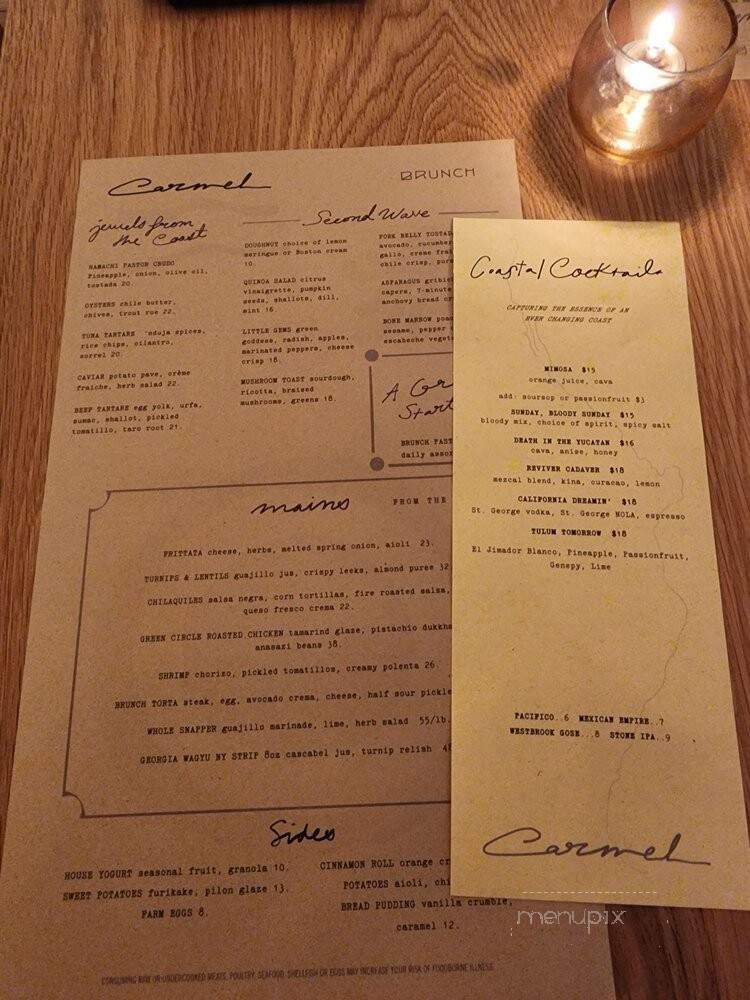 Carmel
BRUNCH
jewels from
the Coast
HAMACHI PASTOR CRUDO
Pineapple, onion, olive oil,
tostada 20.
OYSTERS chile butter,
chives, trout roe 22.
TUNA TARTARE 'nduja spices,
rice chips, cilantro,
sorrel 20.
CAVIAR potato pave, crème
fraiche, herb salad 22.
BEEF TARTARE egg yolk, urfa,
sumac, shallot, pickled
tomatillo, taro root 21.
Second Wave
DOUGHNUT choice of lemon
meringue or Boston cream
10.
QUINOA SALAD citrus
vinaigrette, pumpkin
seeds, shallots, dill,
mint 16.
LITTLE GEMS green
goddess, radish, apples,
marinated peppers, cheese
crisp 18.
MUSHROOM TOAST sourdough,
ricotta, braised
mushrooms, greens 18.
PORK BELLY
avocado,
gallo, creme
chile crisp,
ASPARAGUS
capers, 7-minute
anchovy bread
BONE MARROW
sesame, pepper
escabeche
A
Start
BRUNCH
daily
mains
FROM THE
FRITTATA cheese, herbs, melted spring onion, aioli 23.
TURNIPS & LENTILS guajillo jus, crispy leeks, almond puree 32
CHILAQUILES salsa negra, corn tortillas, fire roasted salsa,
queso fresco crema 22.
GREEN CIRCLE ROASTED CHICKEN tamarind glaze, pistachio
anasazi beans 38.
SHRIMP chorizo, pickled tomatillos, creamy polenta 26.
BRUNCH TORTA steak, egg, avocado crema, cheese, half sour pickle
WHOLE SNAPPER guajillo marinade, lime, herb salad 55/lb.
GEORGIA WAGYU NY STRIP 8oz cascabel jus, turnip relish
Sides
HOUSE YOGURT seasonal fruit, granola 10.
SWEET POTATOES furikake, pilon glaze 13.
FARM EGGS 8.
CINNAMON ROLL orange
POTATOES aioli,
BREAD PUDDING vanilla crumble,
caramel 12.
CONSUMING RAW OR UNDERCOOKED MEATS, POULTRY, SEAFOOD, SHELLFISH OR EGGS MAY INCREASE YOUR RISK OF FOODBORNE ILLNESS.
Coastal Cocktails
CAPTURING THE ESSENCE OF AN
EVER CHANGING COAST
MIMOSA $15
orange juice, cava
add: soursop or passionfruit $3
SUNDAY, BLOODY SUNDAY $15
bloody mix, choice of spirit, spicy salt
DEATH IN THE YUCATAN $16
cava, anise, honey
REVIVER CADAVER $18
mezcal blend, kina, curacao, lemon
CALIFORNIA DREAMIN' $18
St. George vodka, St. George NOLA, espresso
TULUM TOMORROW $18
El Jimador Blanco, Pineapple, Passionfruit,
Genepy, Lime
PACIFICO..6 MEXICAN EMPIRE..7
WESTBROOK GOSE...8 STONE IPA..9
Carmel
menupix